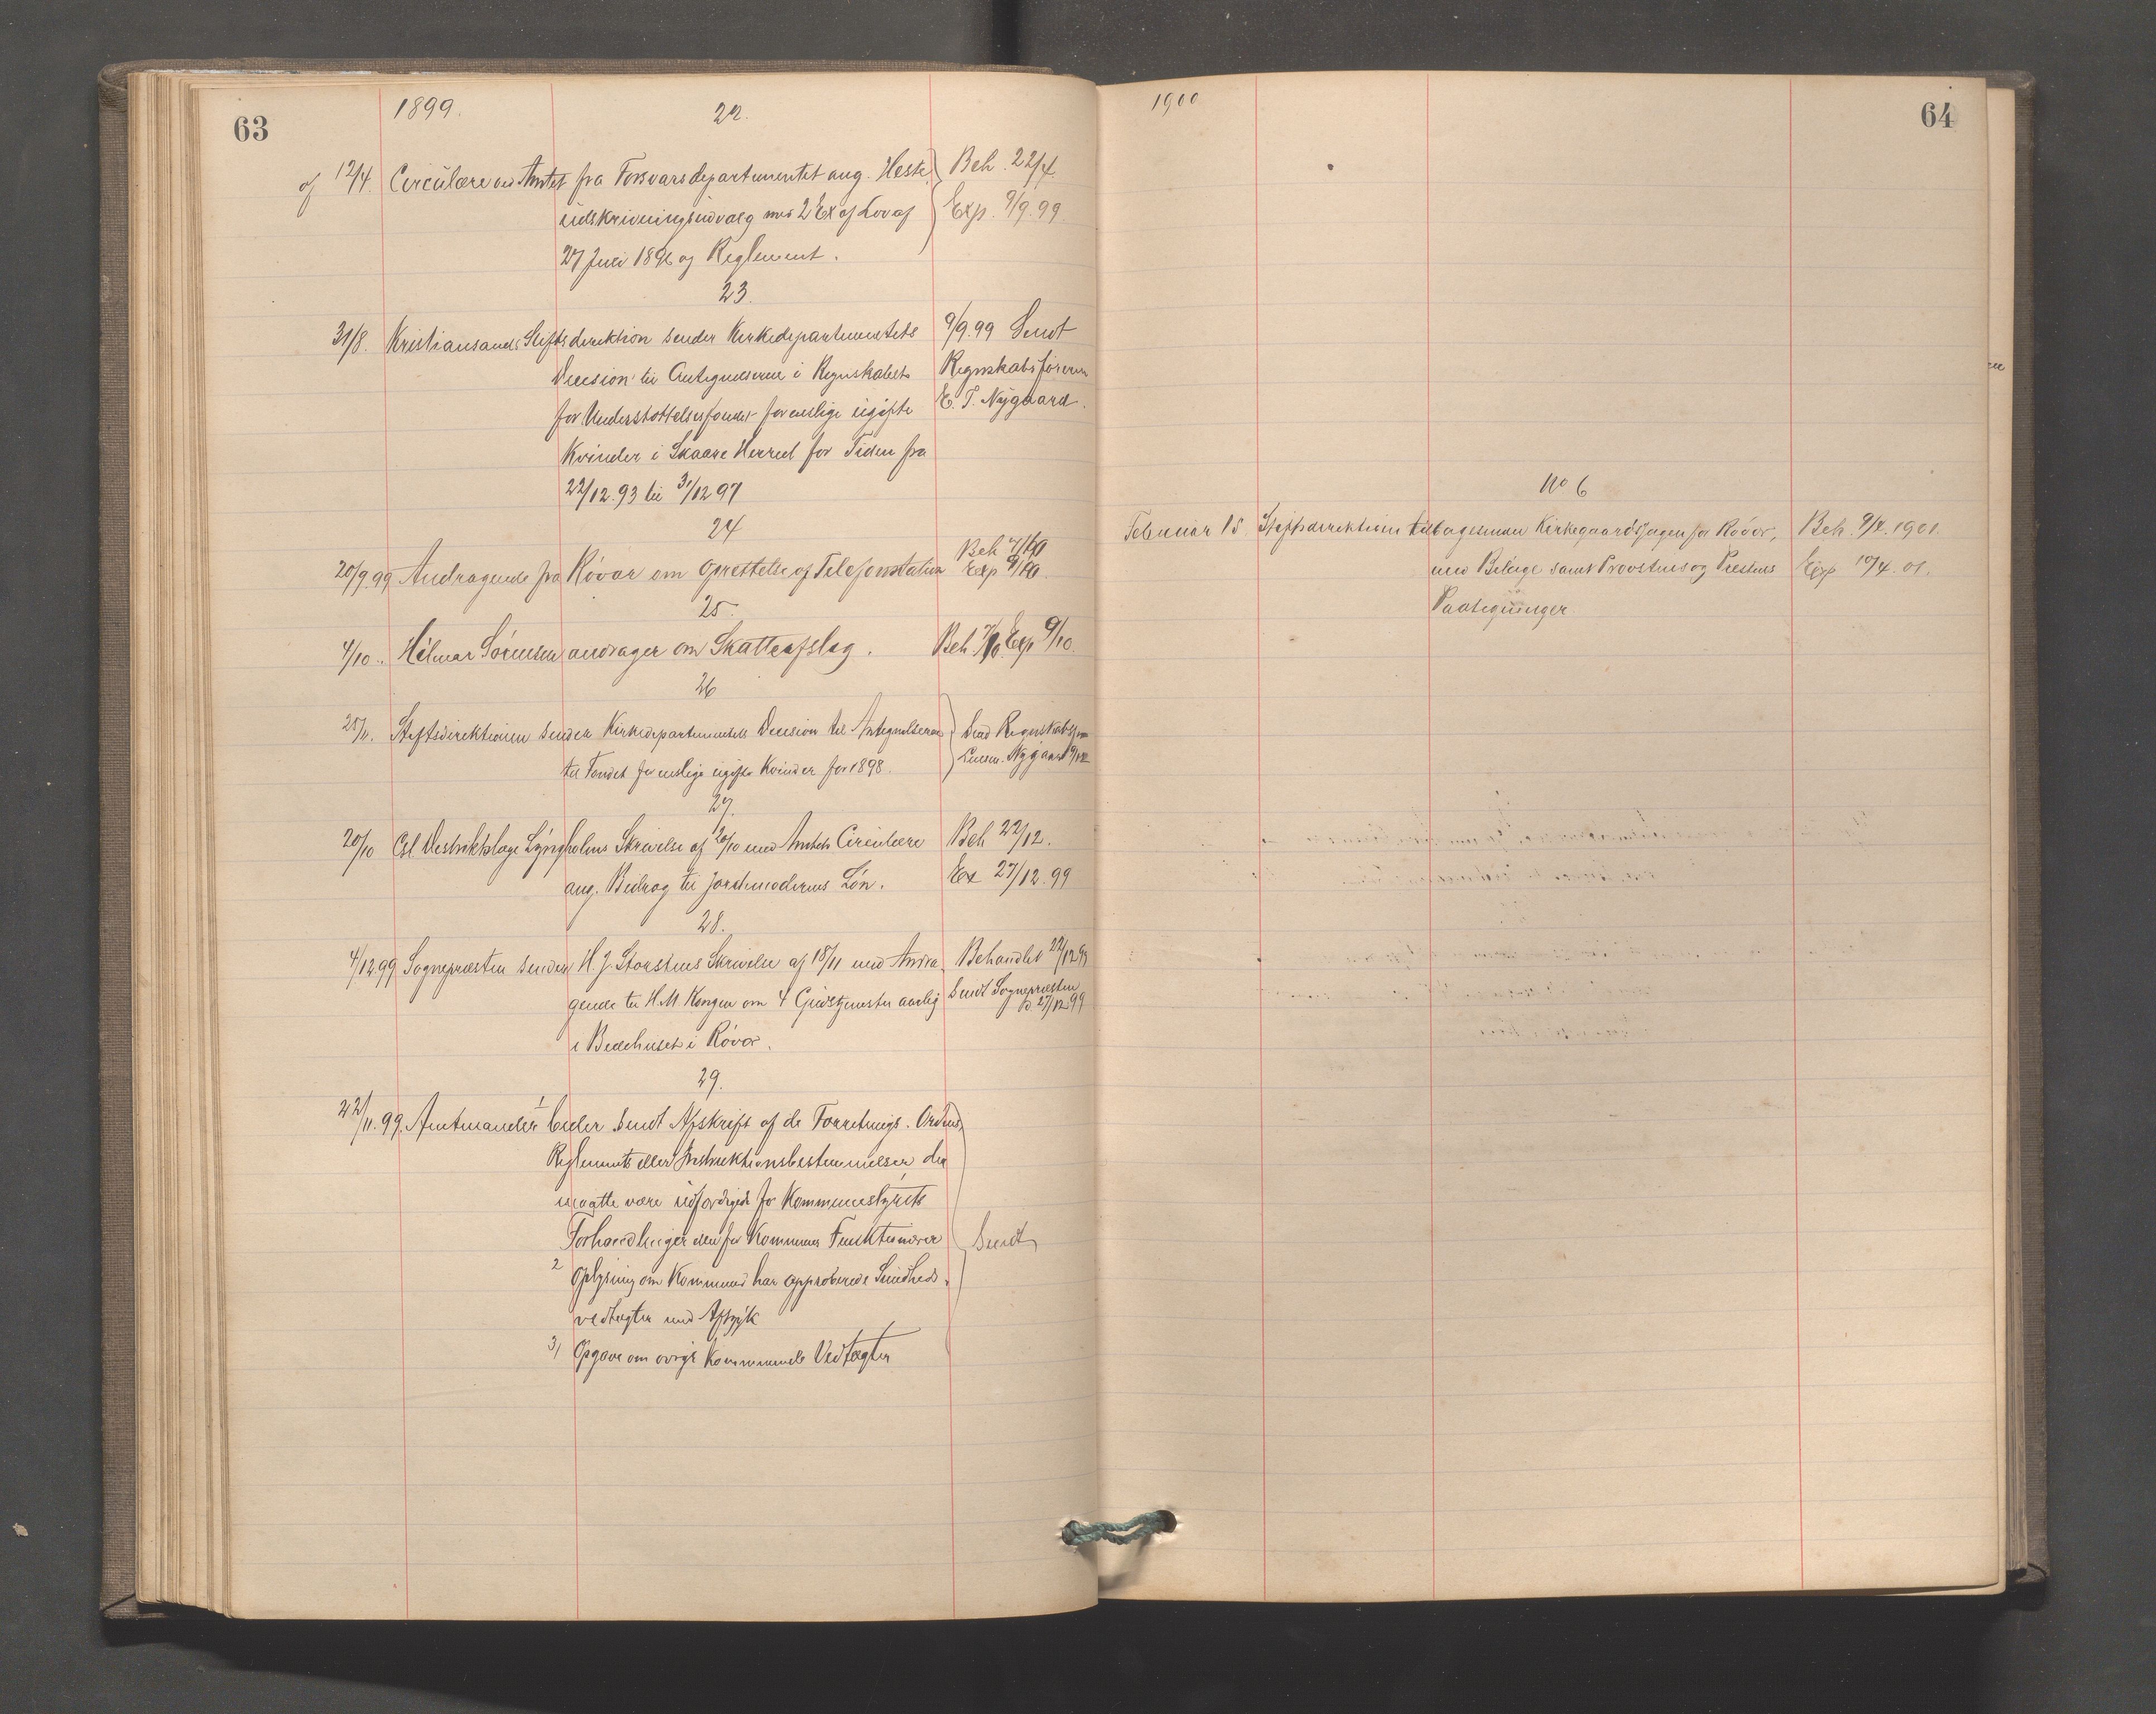 63
1899.
22.
af 12/4. Circulære ved Amtet fra Forsvarsdepartementet ang. Heste Beh. 22/4.
udskrivningsudvalg med 2 Ex af Lov af Exp. 9/9.99
27 Juni 1896 og Reglement.
23.
31/8. Kristiansands Stiftsdirektion sender Kirkedepartementets 9/9.99 Sendt
Decision til Antegnelserne i Regnskabet Regnskabsføreren
for Understøttelsesfondet for enslige ugifte E. T. Nygaard.
Kvinder i Skaare Herred for Tiden fra
22/12.93 til 31/12 97
24
20/9.99 Andragende fra Røvær om Oprettelse af Telefonstation Beh 7/10
Exp 9/10.
25.
4/10. Hilmar Sørensen andrager om Skatteafslag. Beh. 7/10. Exp 9/10.
26
25/11. Stiftsdirektionen sender Kirkedepartementets Decision til Antegnelserne Send Regnskabsfør
til Fondet for enslige ugifte Kvinder for 1898. Lensm. Nygaard 9/12
27.
20/10 Cst Distriktslæge Lyngholms Skrivelse af 20/10 med Amtets Circulære Beh 22/12.
ang. Bidrag til Jordmoderens Løn. Ex 27/12.99
28.
4/12.99 Sognepræsten sender H. J. Storstens Skrivelse af 18/11 med Andra Behandlet 22/12.99
gende til H.M. Kongen om 4 Gudstjenester aarlig Sendt Sognepræsten
D. 27/12.99
i Bedehuset i Røvær.
29.
22/11.99. Amtmanden 1 beder sendt Afskrift af de Forretnings. Ordens,
Reglements eller Instruktionsbestemmelser, der
maatte være udfærdiget for Kommunestyrets
Forhandlinger eller for Kommunens Funktionærer Sendt
2 Oplysning om Kommunen har approberede Sundheds
vedtægter med Aftryk
3, Opgave om øvrige Kommunale Vedtægter
1900
64
No 6
Februar 15 Stiftsdirektionen tilbagesender Kirkegaardssagen for Røvær, Beh. 9/4. 1901.
med Bilage samt Provstens og Prestens Exp 10/4. 01.
Paategninger.